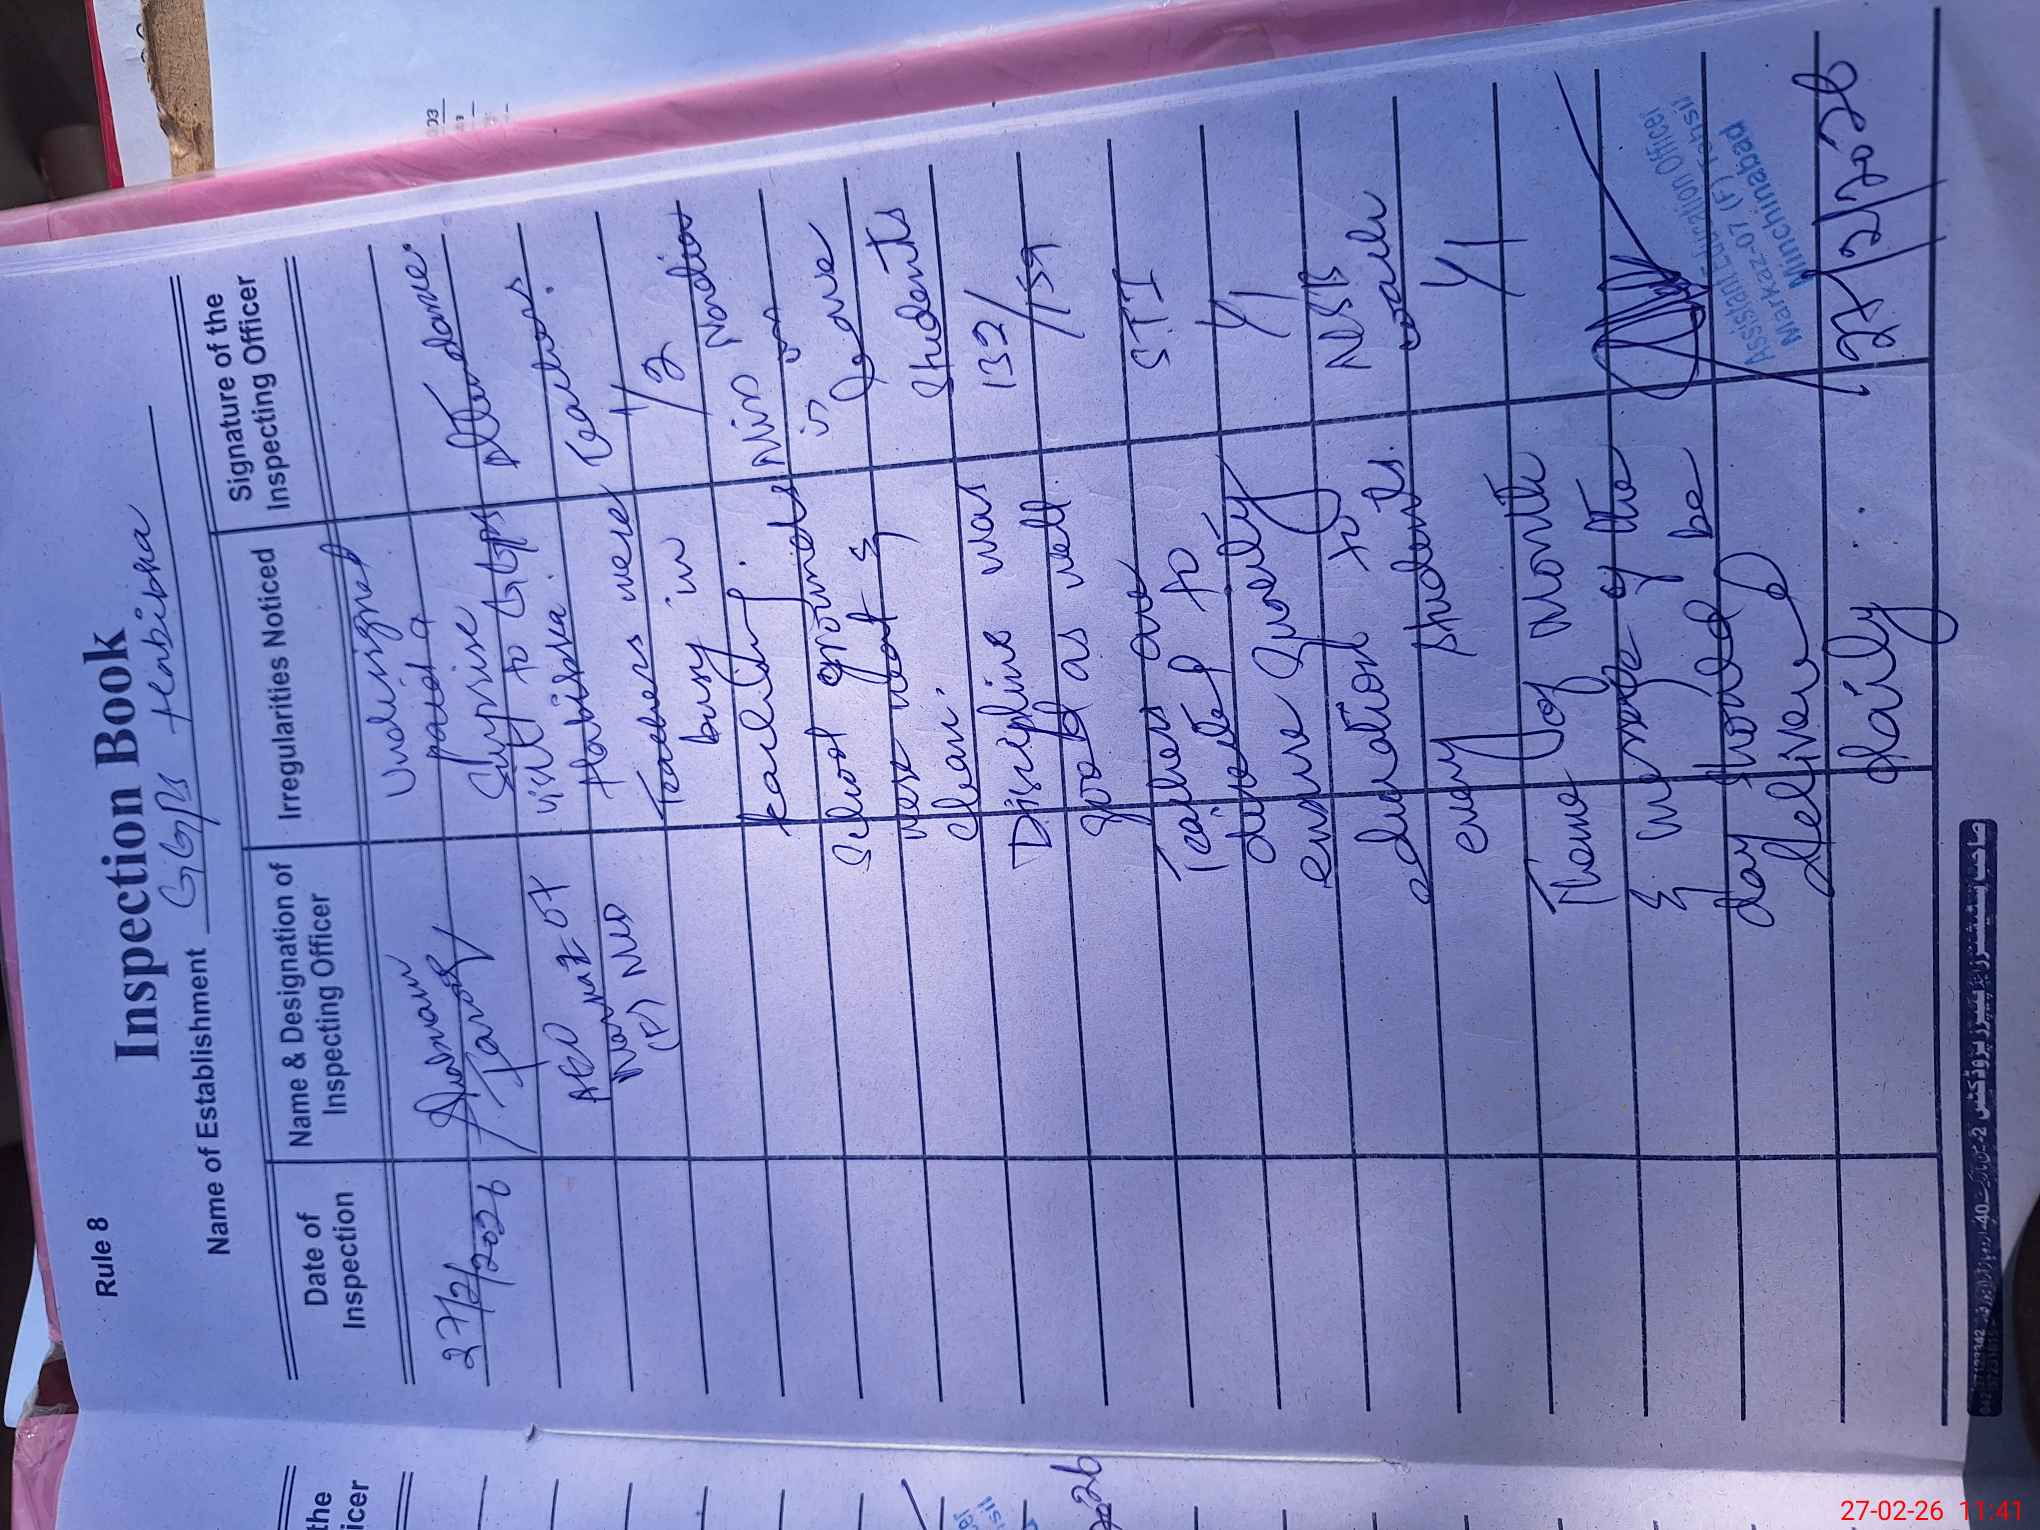 Rule 8
Inspection Book
Name of Establishment GGPS Habibka
Date of Inspection
Name & Designation of Inspecting Officer
Irregularities Noticed
Signature of the Inspecting Officer
27/2/2026
AEO
Markaz 07
(F) MND
Undersigned
paid a
Surprise
visit to GGPS
Habibka.
Teachers were
busy in
teaching.
School grounds
were neat &
clean.
Discipline was
good as well.
Teachers are
directed to
ensure Quality
education to
students.
every student
Theme of Month
& message of the
day should be
delivered
daily.
Attendance
Teachers
1/2
Miss Nardia
is on
leave
Students
132/159
STI
1/1
NSB
1/1
Assistant Education Officer
Markaz-07 (F) Tehsil
Minchinabad
27/2/2026
the
icer
2026
27-02-26 11:41